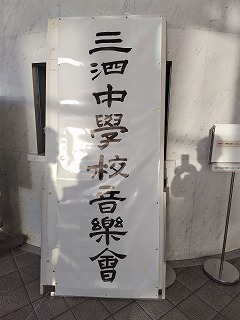 三泗中學校音樂會